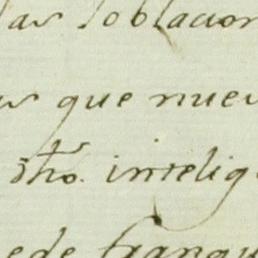 las Poblacion
que nuev
dho. intelig
ede franqu